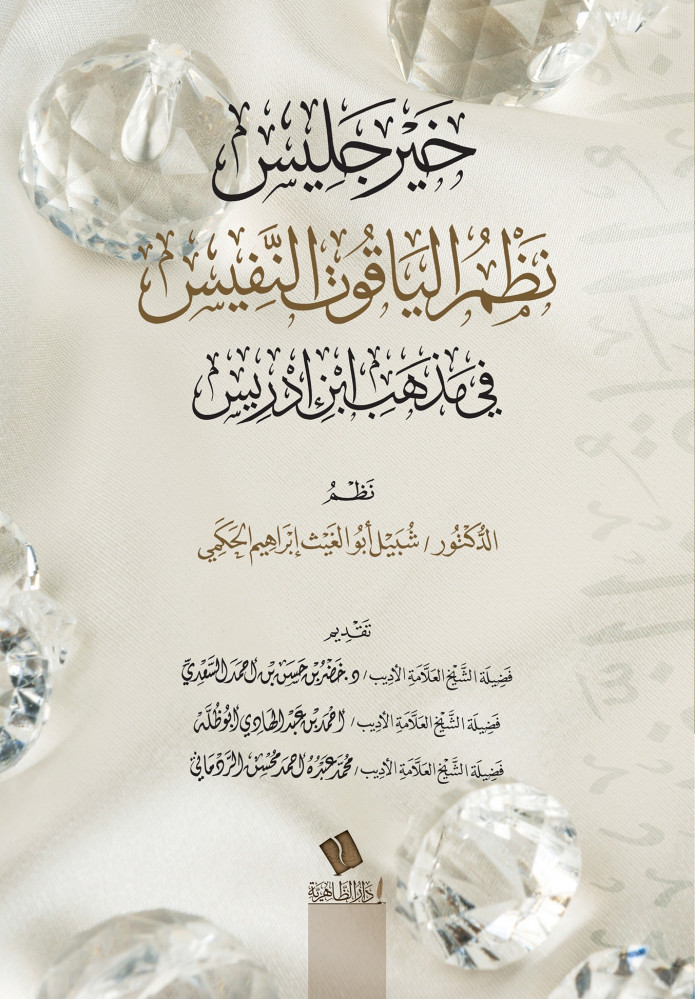 خَيْرُ جَلِيس
نَظْمُ اليَاقُوتِ النَّفِيس
فِي مَذْهَبِ ابْنِ إدْرِيس
نَظْمُ
الدُّكْتُور / شُبَيْل أَبُو الغَيْث إبْرَاهِيم الحَكَمِي
تَقْدِيم
فَضِيلَة الشَّيْخ العَلَّامَةِ الأَدِيبِ / د. خَضِر بْن حَسَن بْن أحْمَد السَّعْدِيّ
فَضِيلَة الشَّيْخ العَلَّامَةِ الأَدِيبِ / أحْمَد بْن عَبْد الهَادِي أبُو طَلَّه
فَضِيلَة الشَّيْخ العَلَّامَةِ الأَدِيبِ / مُحَمَّد عَبْدُه أحْمَد مُحْسِن الرَّدْمَانِي
دَارُ الظَّاهِرِيَّة